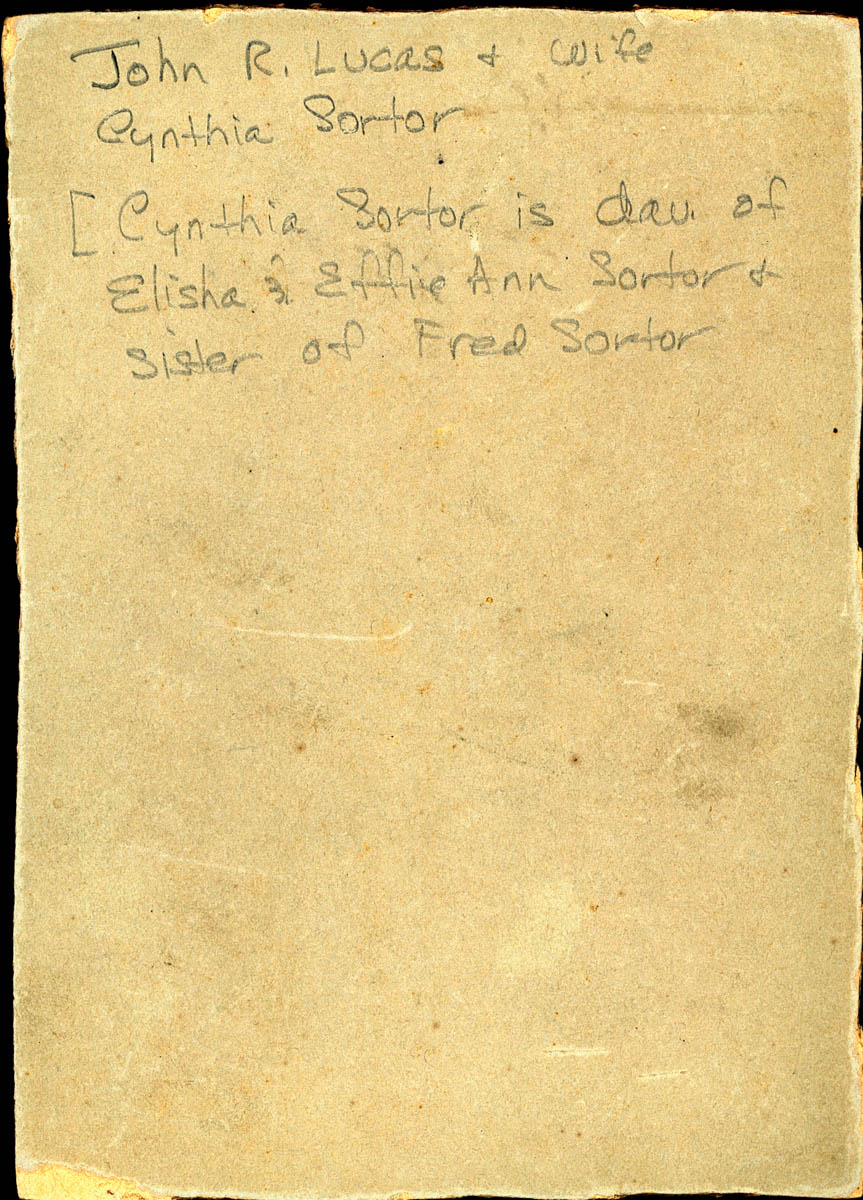 John R. Lucas & wife
Cynthia Sortor
[Cynthia Sortor is dau. of
Elisha & Effie Ann Sortor &
sister of Fred Sortor